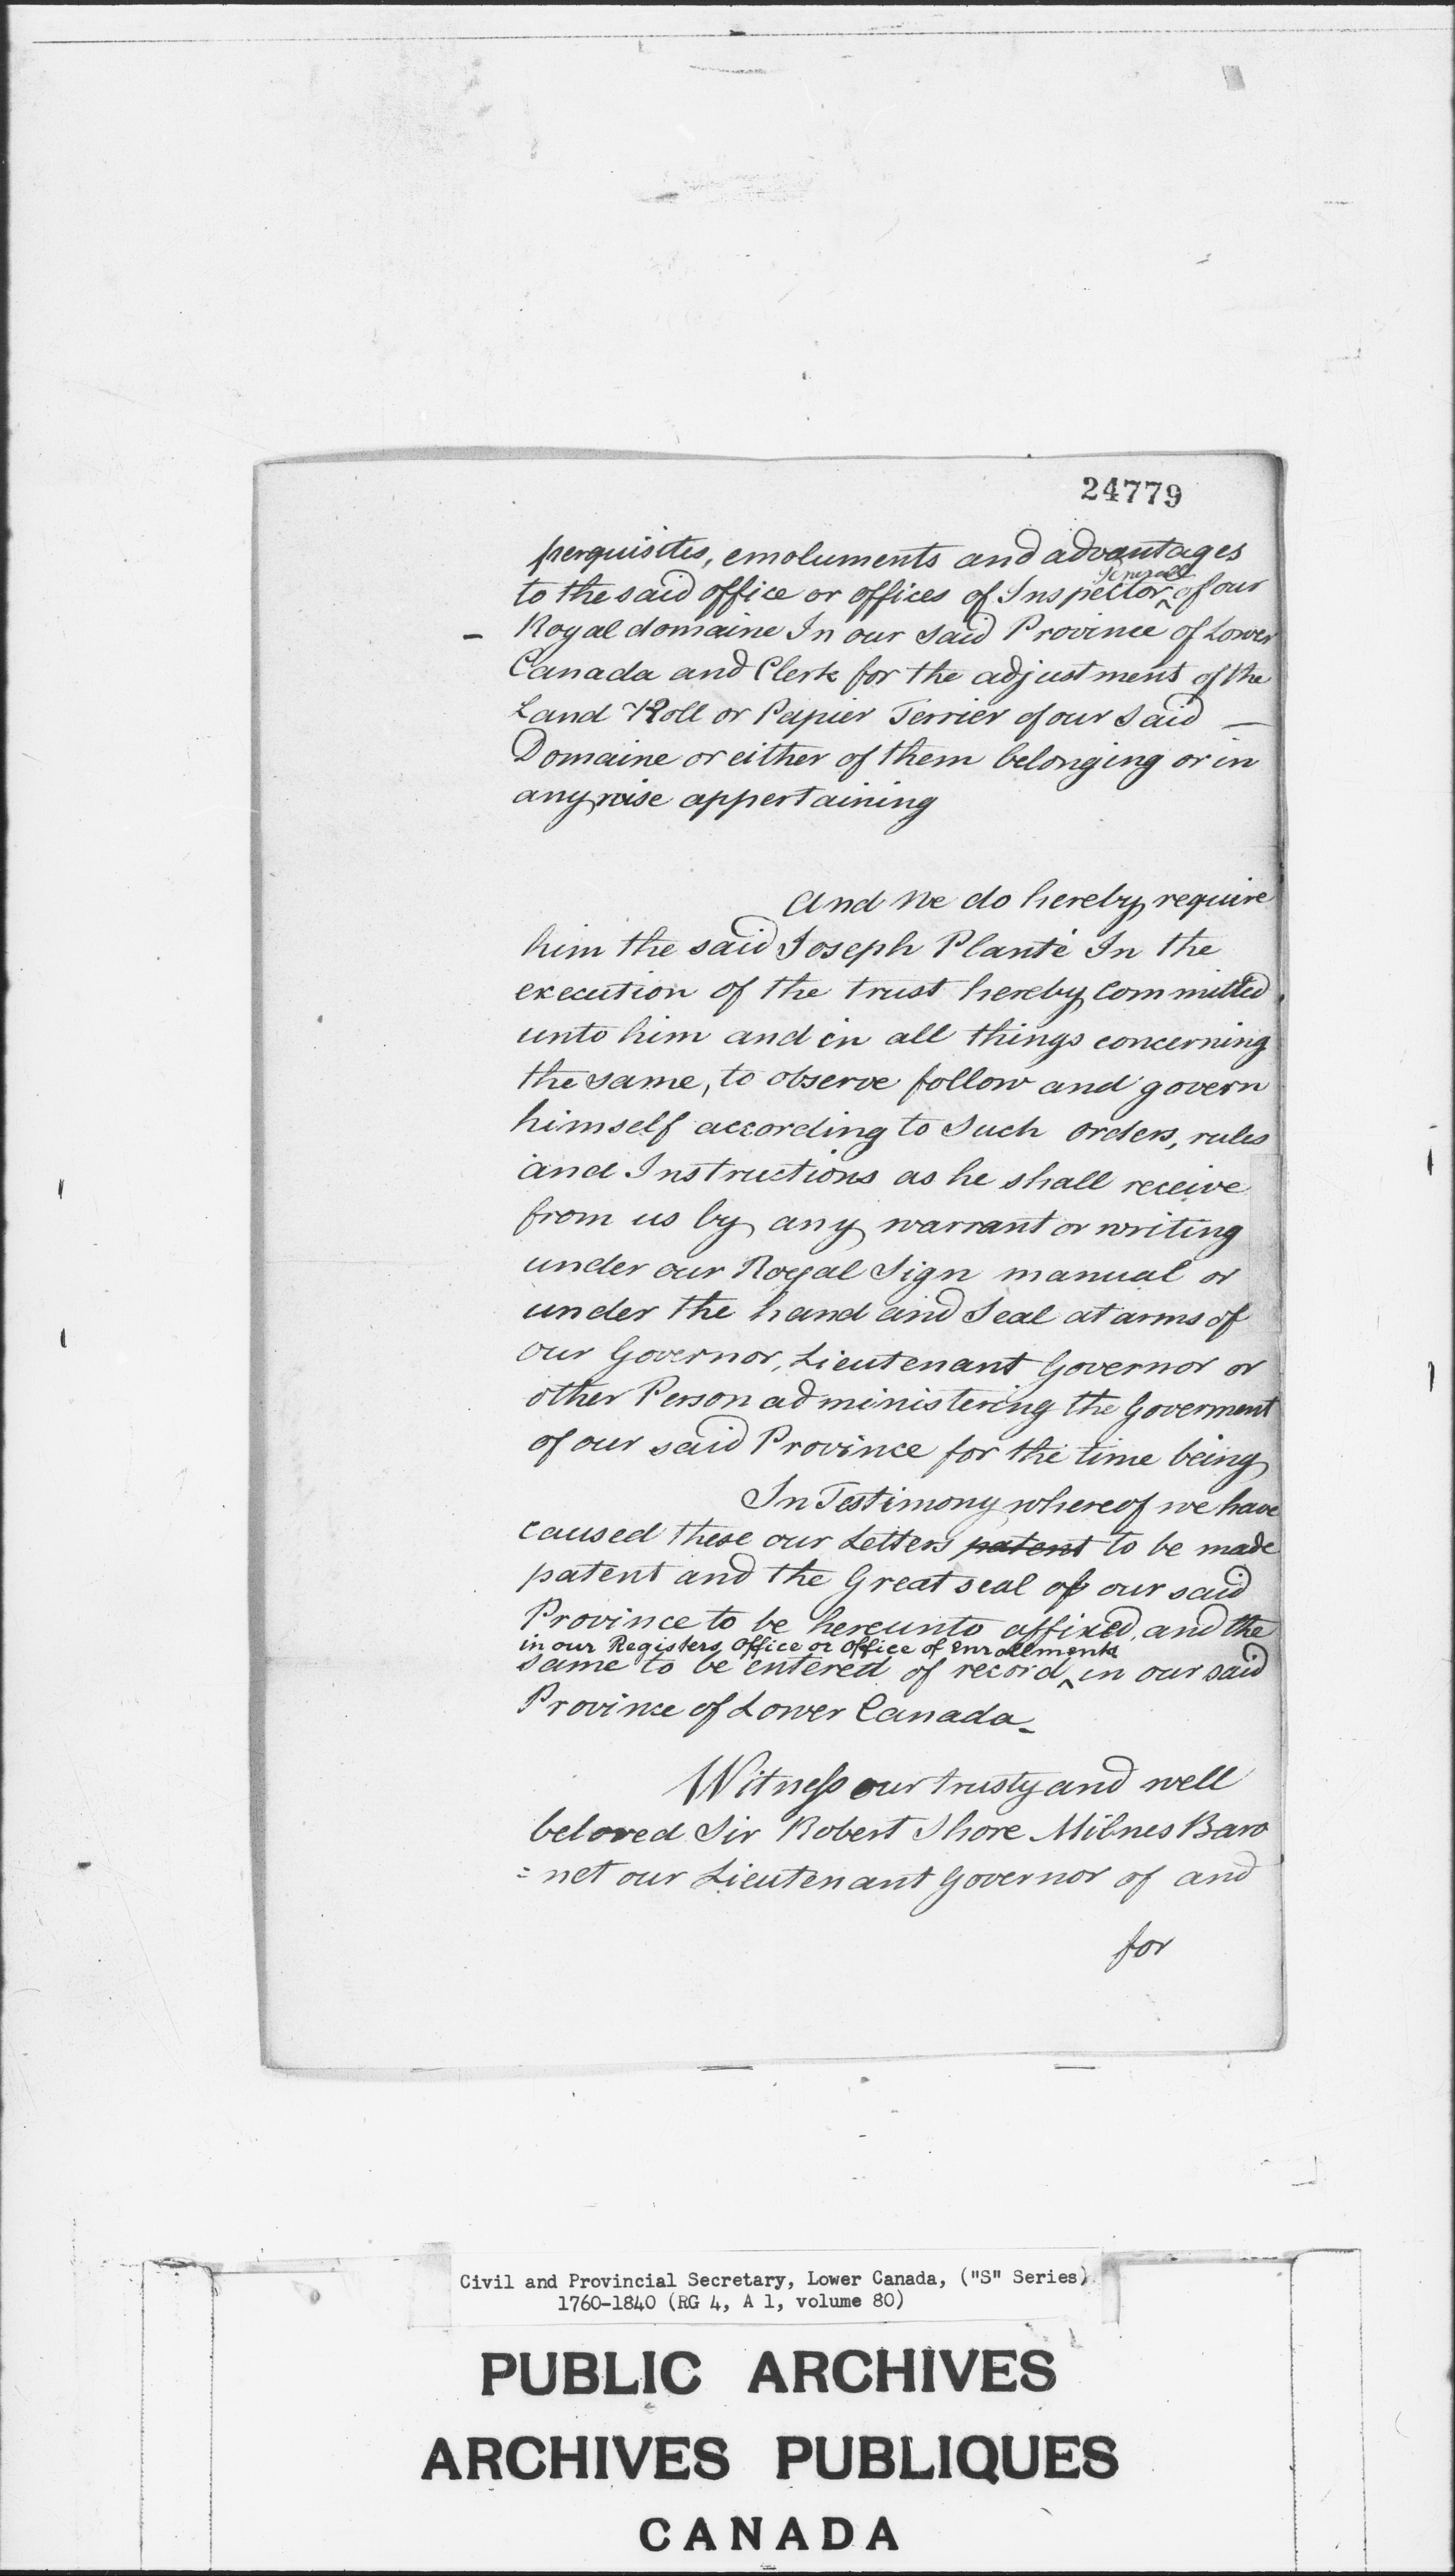 24779
perquisites, emoluments and advantages
General
to the said office or offices of Inspector ^ of our
- Royal domaine In our said Province of Lower
Canada and Clerk for the adjustment of the
Land Roll or Papier Terrier of our Said —
Domaine or either of them belonging or in
any wise appertaining
And We do hereby require
him the said Joseph Planté In the
execution of the trust hereby Committed
unto him and in all things concerning
the same, to observe follow and govern
himself according to Such orders, rules
and Instructions as he shall receive
from us by any warrant or writing
under our Royal Sign manual or
under the hand and Seal at arms of
our Governor, Lieutenant Governor or
other Person administering the Goverment
of our said Province for the time being
In Testimony whereof we have
caused these our Letters patent to be made
patent and the Great seal of our said
Province to be hereunto affixed, and the
in our Registers office or office of Enrollments
same to be entered of record ^ in our said
Province of Lower Canada_
Witness our trusty and well
beloved Sir Robert Shore Milnes Baro
= net our Lieutenant Governor of and
for
Civil and Provincial Secretary, Lower Canada, ("S" Series)
1760-1840 (RG 4, A 1, volume 80)
PUBLIC ARCHIVES
ARCHIVES PUBLIQUES
CANADA